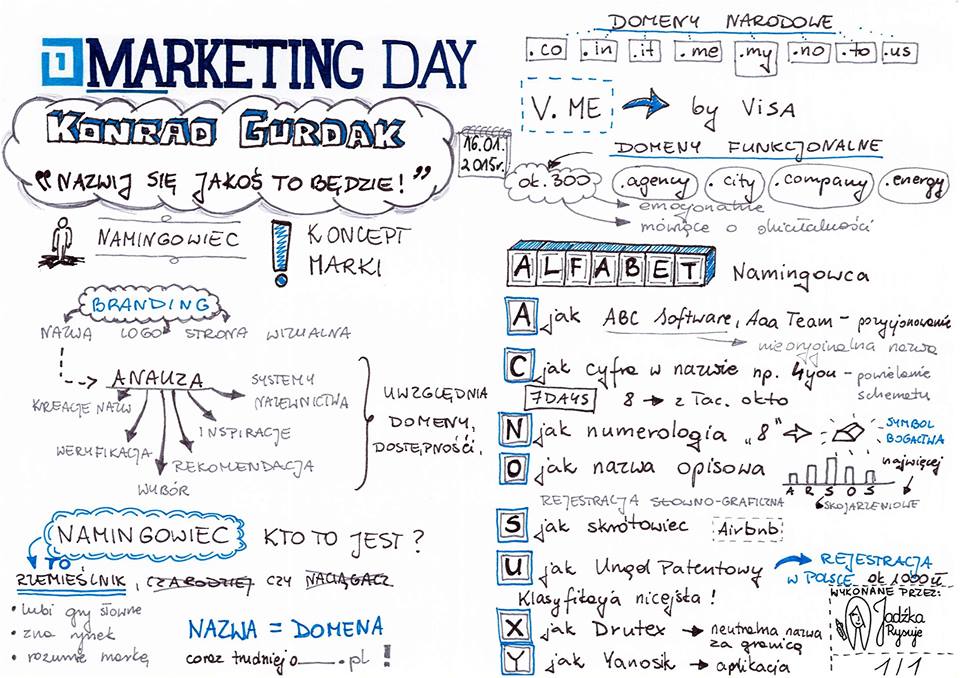 MARKETING DAY
KONRAD GURDAK
"NAZWIJ SIĘ JAKOŚ TO BĘDZIE!"
16.01.
2015r.
NAMINGOWIEC
! KONCEPT
MARKI
BRANDING
NAZWA LOGO STRONA WIZUALNA
ANALIZA
KREACJE NAZW
WERYFIKACJA
WYBÓR
REKOMENDACJA
INSPIRACJE
SYSTEMY
NAZEWNICTWA
UWZGLĘDNIA
DOMENY,
DOSTĘPNOŚCI.
NAMINGOWIEC KTO TO JEST?
TO
RZEMIEŚLNIK, CZARODZIEJ CZY NACIĄGACZ
• lubi gry słowne
• zna rynek
• rozumie markę
NAZWA = DOMENA
coraz trudniej o ____.pl !
DOMENY NARODOWE
.co .in .it .me .my .no .to .us
V.ME → by VISA
DOMENY FUNKCJONALNE
ok. 300 .agency .city .company .energy
emocjonalne
mówiące o działalności
ALFABET Namingowca
A jak ABC Software, Aaa Team - pozycjonowanie
nieoryginalna nazwa
C jak cyfra w nazwie np. 4you - powielanie
schematu
7DAYS 8 → z łac. okto
N jak numerologia „8" ⇒ SYMBOL
BOGACTWA
O jak nazwa opisowa
A R S O S
najwięcej
SKOJARZENIOWE
REJESTRACJA SŁOWNO-GRAFICZNA
S jak skrótowiec Airbnb
U jak Urząd Patentowy → REJESTRACJA
W POLSCE ok 1000 zł
Klasyfikacja nicejska!
X jak Drutex → neutralna nazwa
za granicą
Y jak Yanosik → aplikacja
WYKONANE PRZEZ:
Jadźka
Rysuje
1/1